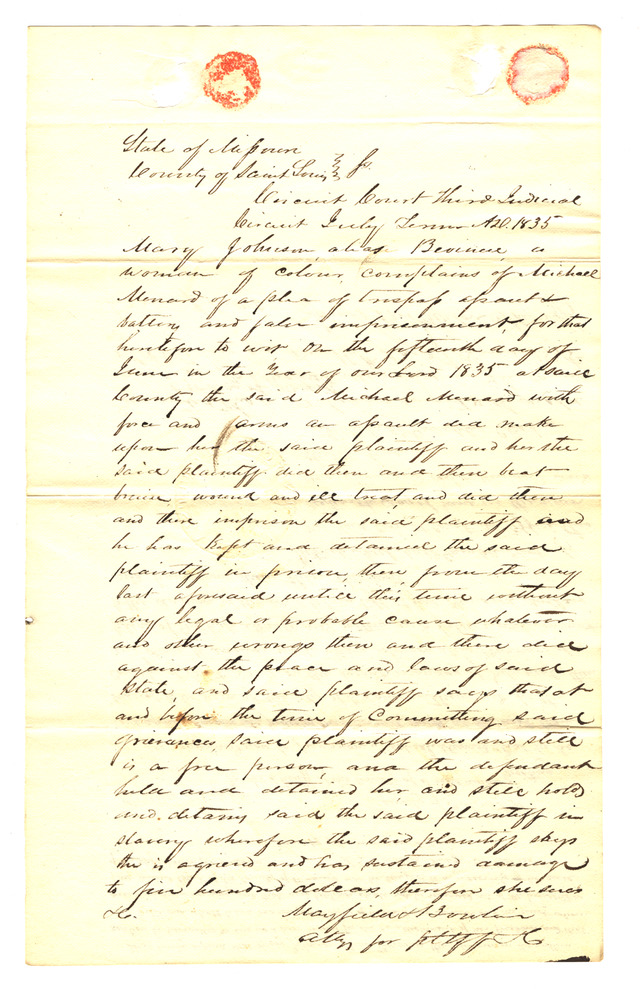 State of Missouri
County of Saint Louis } Ss.
Circuit Court Third Judicial
Circuit July Term AD. 1835
Mary Johnson, alias Bevinue, a
woman of colour, complains of Michael
Menard of a plea of trespass assault &
battery and false imprisonment for that
heretofore to wit on the fifteenth day of
June in the Year of our Lord 1835 at said
County the said Michael Menard with
force and arms an assault did make
upon her the said plaintiff and her the
said plaintiff did then and there beat
bruise wound and ill treat, and did then
and there imprison the said plaintiff and
he has kept and detained the said
plaintiff in prison, there, from the day
last aforesaid untill this time without
any legal or probable cause whatever
and other wrongs then and there did
against the peace and laws of said
State, and said plaintiff says that at
and before the time of Committing said
grievances, said plaintiff was and still
is a free person, and the defendant
held and detained her, and still holds
and detains said the said plaintiff in
slavery wherefore the said plaintiff says
she is agrieved and has sustained damage
to five hundred dollars, therefore she sues
&c. Mayfield & Bowlin
Attys for pltff &c